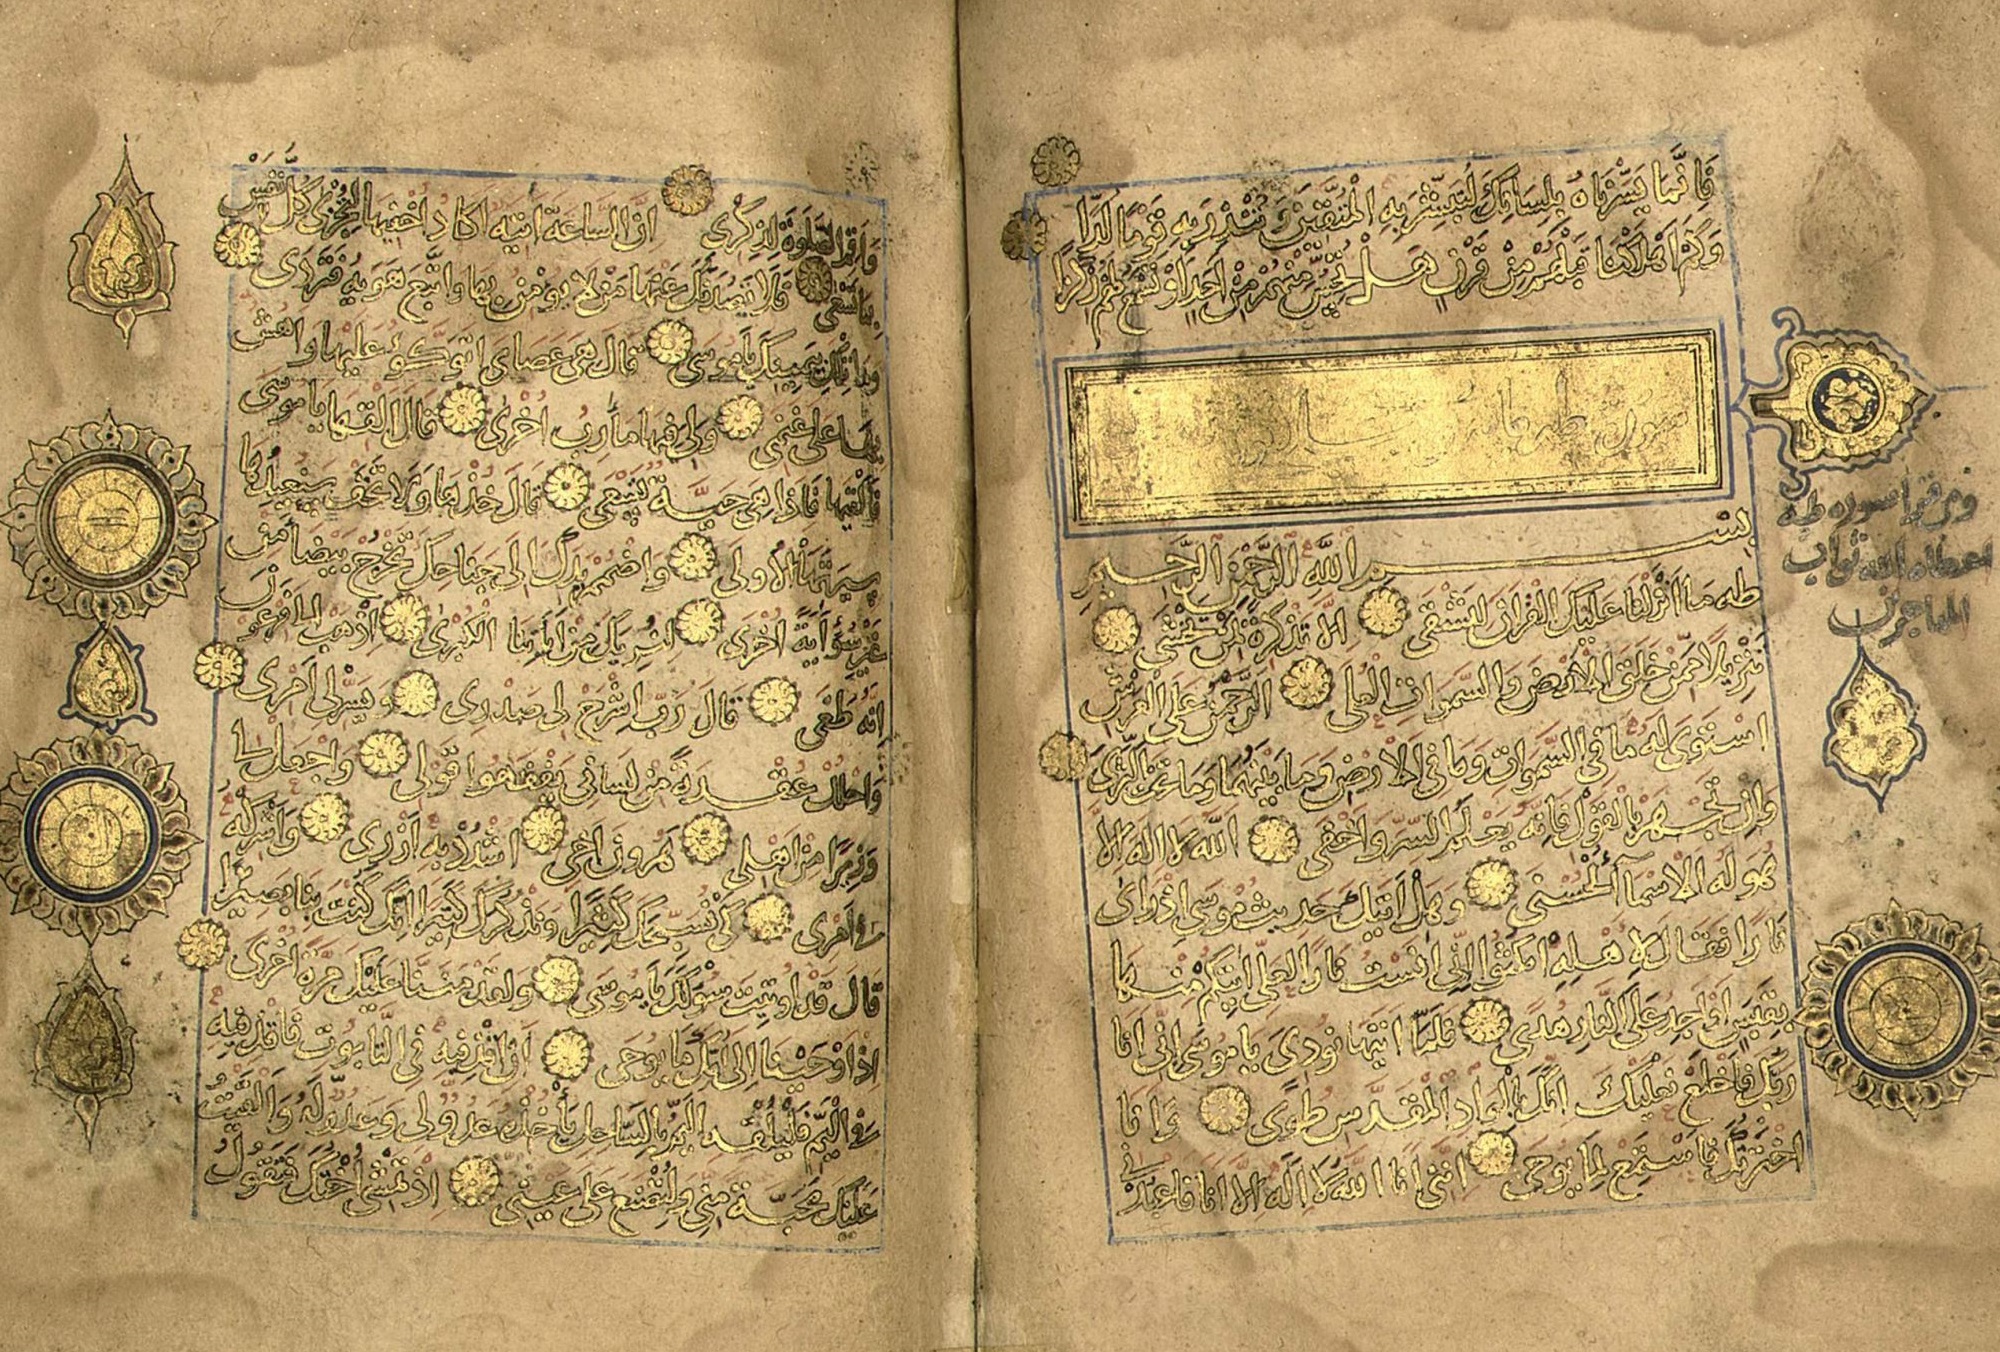 فَإِنَّمَا يَسَّرْنَاهُ بِلِسَانِكَ لِتُبَشِّرَ بِهِ الْمُتَّقِينَ وَتُنْذِرَ بِهِ قَوْمًا لُدًّا
وَكَمْ أَهْلَكْنَا قَبْلَهُمْ مِنْ قَرْنٍ هَلْ تُحِسُّ مِنْهُمْ مِنْ أَحَدٍ أَوْ تَسْمَعُ لَهُمْ رِكْزًا
سورة طه
ومن قرا سورة طه
اعطاه الله ثواب
المهاجرين
بِسْمِ اللَّهِ الرَّحْمَنِ الرَّحِيمِ
طه مَا أَنْزَلْنَا عَلَيْكَ الْقُرْآنَ لِتَشْقَى إِلَّا تَذْكِرَةً لِمَنْ يَخْشَى
تَنْزِيلًا مِمَّنْ خَلَقَ الْأَرْضَ وَالسَّمَوَاتِ الْعُلَى الرَّحْمَنُ عَلَى الْعَرْشِ
اسْتَوَى لَهُ مَا فِي السَّمَوَاتِ وَمَا فِي الْأَرْضِ وَمَا بَيْنَهُمَا وَمَا تَحْتَ الثَّرَى
وَإِنْ تَجْهَرْ بِالْقَوْلِ فَإِنَّهُ يَعْلَمُ السِّرَّ وَأَخْفَى اللَّهُ لَا إِلَهَ إِلَّا
هُوَ لَهُ الْأَسْمَا الْحُسْنَى وَهَلْ أَتَيكَ حَدِيثُ مُوسَى إِذْ رَأَى
نَارًا فَقَالَ لِأَهْلِهِ امْكُثُوا إِنِّي آنَسْتُ نَارًا لَعَلِّي آتِيكُمْ مِنْهَا
بِقَبَسٍ أَوْ أَجِدُ عَلَى النَّارِ هُدًى فَلَمَّا أَتَيهَا نُودِيَ يَا مُوسَى إِنِّي أَنَا
رَبُّكَ فَاخْلَعْ نَعْلَيْكَ إِنَّكَ بِالْوَادِ الْمُقَدَّسِ طُوًى وَأَنَا
اخْتَرْتُكَ فَاسْتَمِعْ لِمَا يُوحَى إِنَّنِي أَنَا اللَّهُ لَا إِلَهَ إِلَّا أَنَا فَاعْبُدْنِي
وَأَقِمِ الصَّلَوةَ لِذِكْرِي إِنَّ السَّاعَةَ آتِيَةٌ أَكَادُ أُخْفِيهَا لِتُجْزَى كُلُّ نَفْسٍ
بِمَا تَسْعَى فَلَا يَصُدَّنَّكَ عَنْهَا مَنْ لَا يُؤْمِنُ بِهَا وَاتَّبَعَ هَوَيهُ فَتَرْدَى
وَمَا تِلْكَ بِيَمِينِكَ يَا مُوسَى قَالَ هِيَ عَصَايَ أَتَوَكَّؤُ عَلَيْهَا وَأَهُشُّ
بِهَا عَلَى غَنَمِي وَلِيَ فِيهَا مَآرِبُ أُخْرَى قَالَ أَلْقِهَا يَا مُوسَى
فَأَلْقَيهَا فَإِذَا هِيَ حَيَّةٌ تَسْعَى قَالَ خُذْهَا وَلَا تَخَفْ سَنُعِيدُهَا
سِيرَتَهَا الْأُولَى وَاضْمُمْ يَدَكَ إِلَى جَنَاحِكَ تَخْرُجْ بَيْضَا مِنْ
غَيْرِ سُوءٍ آيَةً أُخْرَى لِنُرِيَكَ مِنْ آيَاتِنَا الْكُبْرَى اذْهَبْ إِلَى فِرْعَوْنَ
إِنَّهُ طَغَى قَالَ رَبِّ اشْرَحْ لِي صَدْرِي وَيَسِّرْ لِي أَمْرِي
وَاحْلُلْ عُقْدَةً مِنْ لِسَانِي يَفْقَهُوا قَوْلِي وَاجْعَلْ لِي
وَزِيرًا مِنْ أَهْلِي هَرُونَ أَخِي اشْدُدْ بِهِ أَزْرِي وَأَشْرِكْهُ
فِي أَمْرِي كَيْ نُسَبِّحَكَ كَثِيرًا وَنَذْكُرَكَ كَثِيرًا إِنَّكَ كُنْتَ بِنَا بَصِيرًا
قَالَ قَدْ أُوتِيتَ سُؤْلَكَ يَا مُوسَى وَلَقَدْ مَنَنَّا عَلَيْكَ مَرَّةً أُخْرَى
إِذْ أَوْحَيْنَا إِلَى أُمِّكَ مَا يُوحَى أَنِ اقْذِفِيهِ فِي التَّابُوتِ فَاقْذِفِيهِ
فِي الْيَمِّ فَلْيُلْقِهِ الْيَمُّ بِالسَّاحِلِ يَأْخُذْهُ عَدُوٌّ لِي وَعَدُوٌّ لَهُ وَأَلْقَيْتُ
عَلَيْكَ مَحَبَّةً مِنِّي وَلِتُصْنَعَ عَلَى عَيْنِي إِذْ تَمْشِي أُخْتُكَ فَتَقُولُ